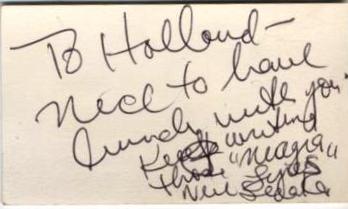 To Holland -
Nice to have
lunch with you.
Keep writing
those "
Neil Sedaka